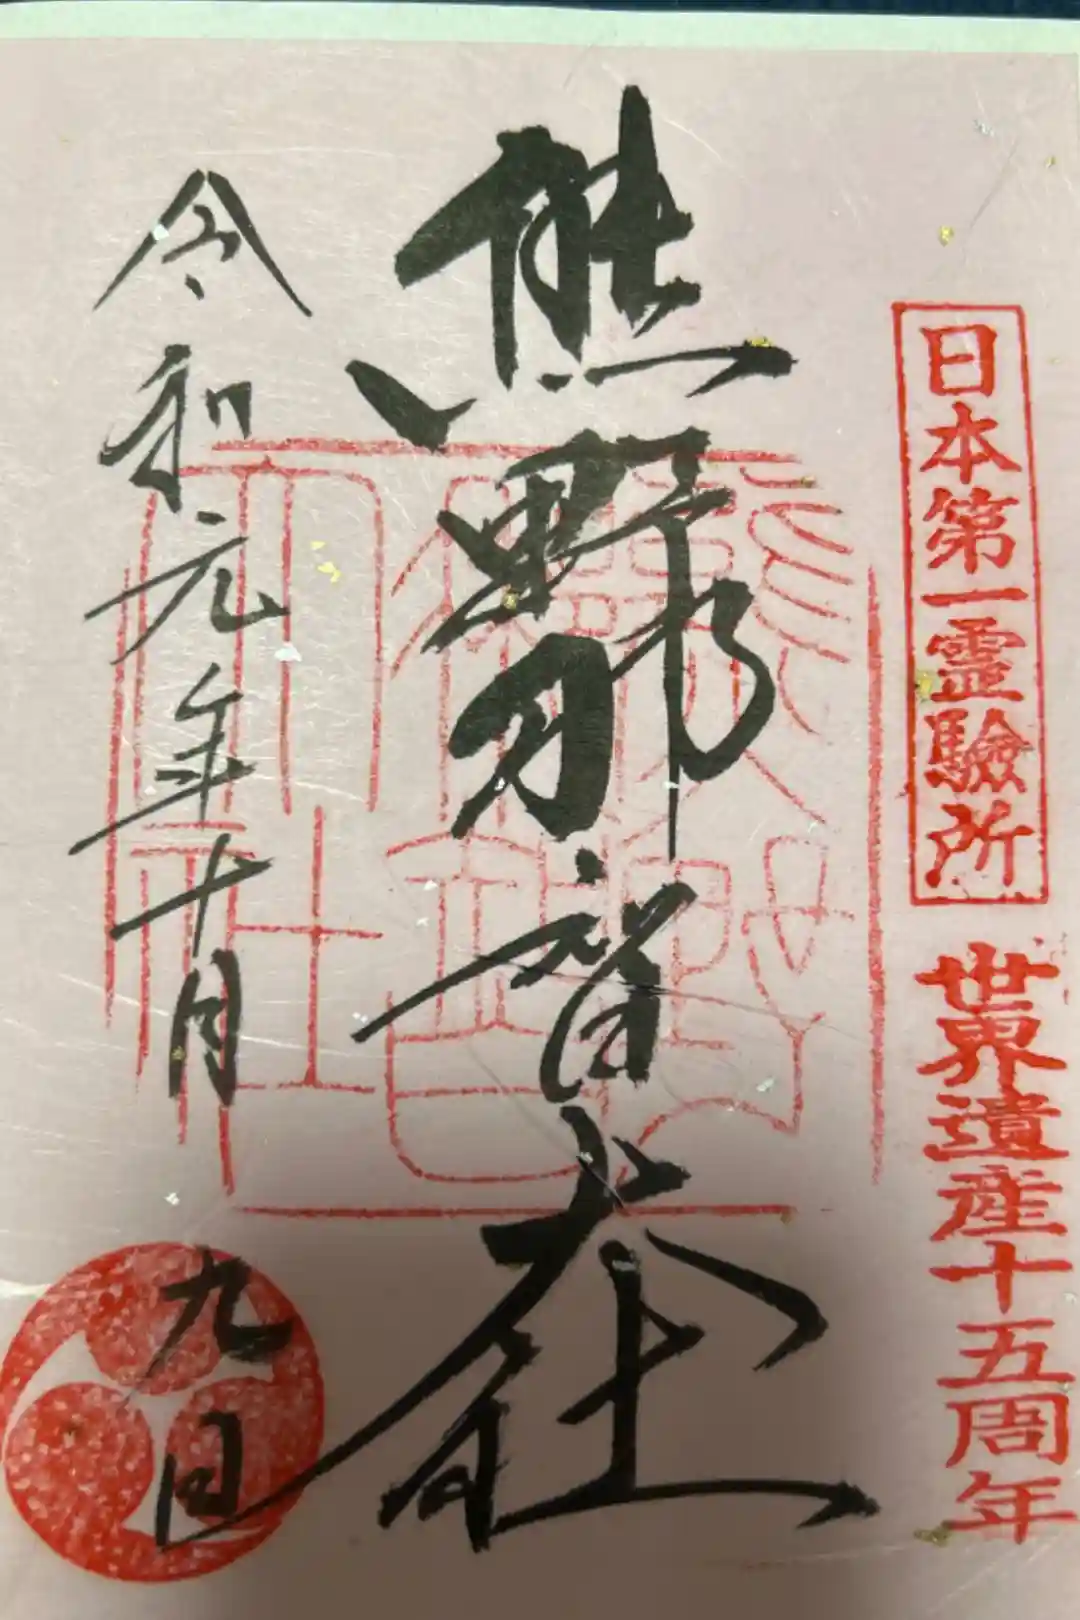 日本第一霊驗所
世界遺産十五周年
熊野那智大社
令和元年十月九日